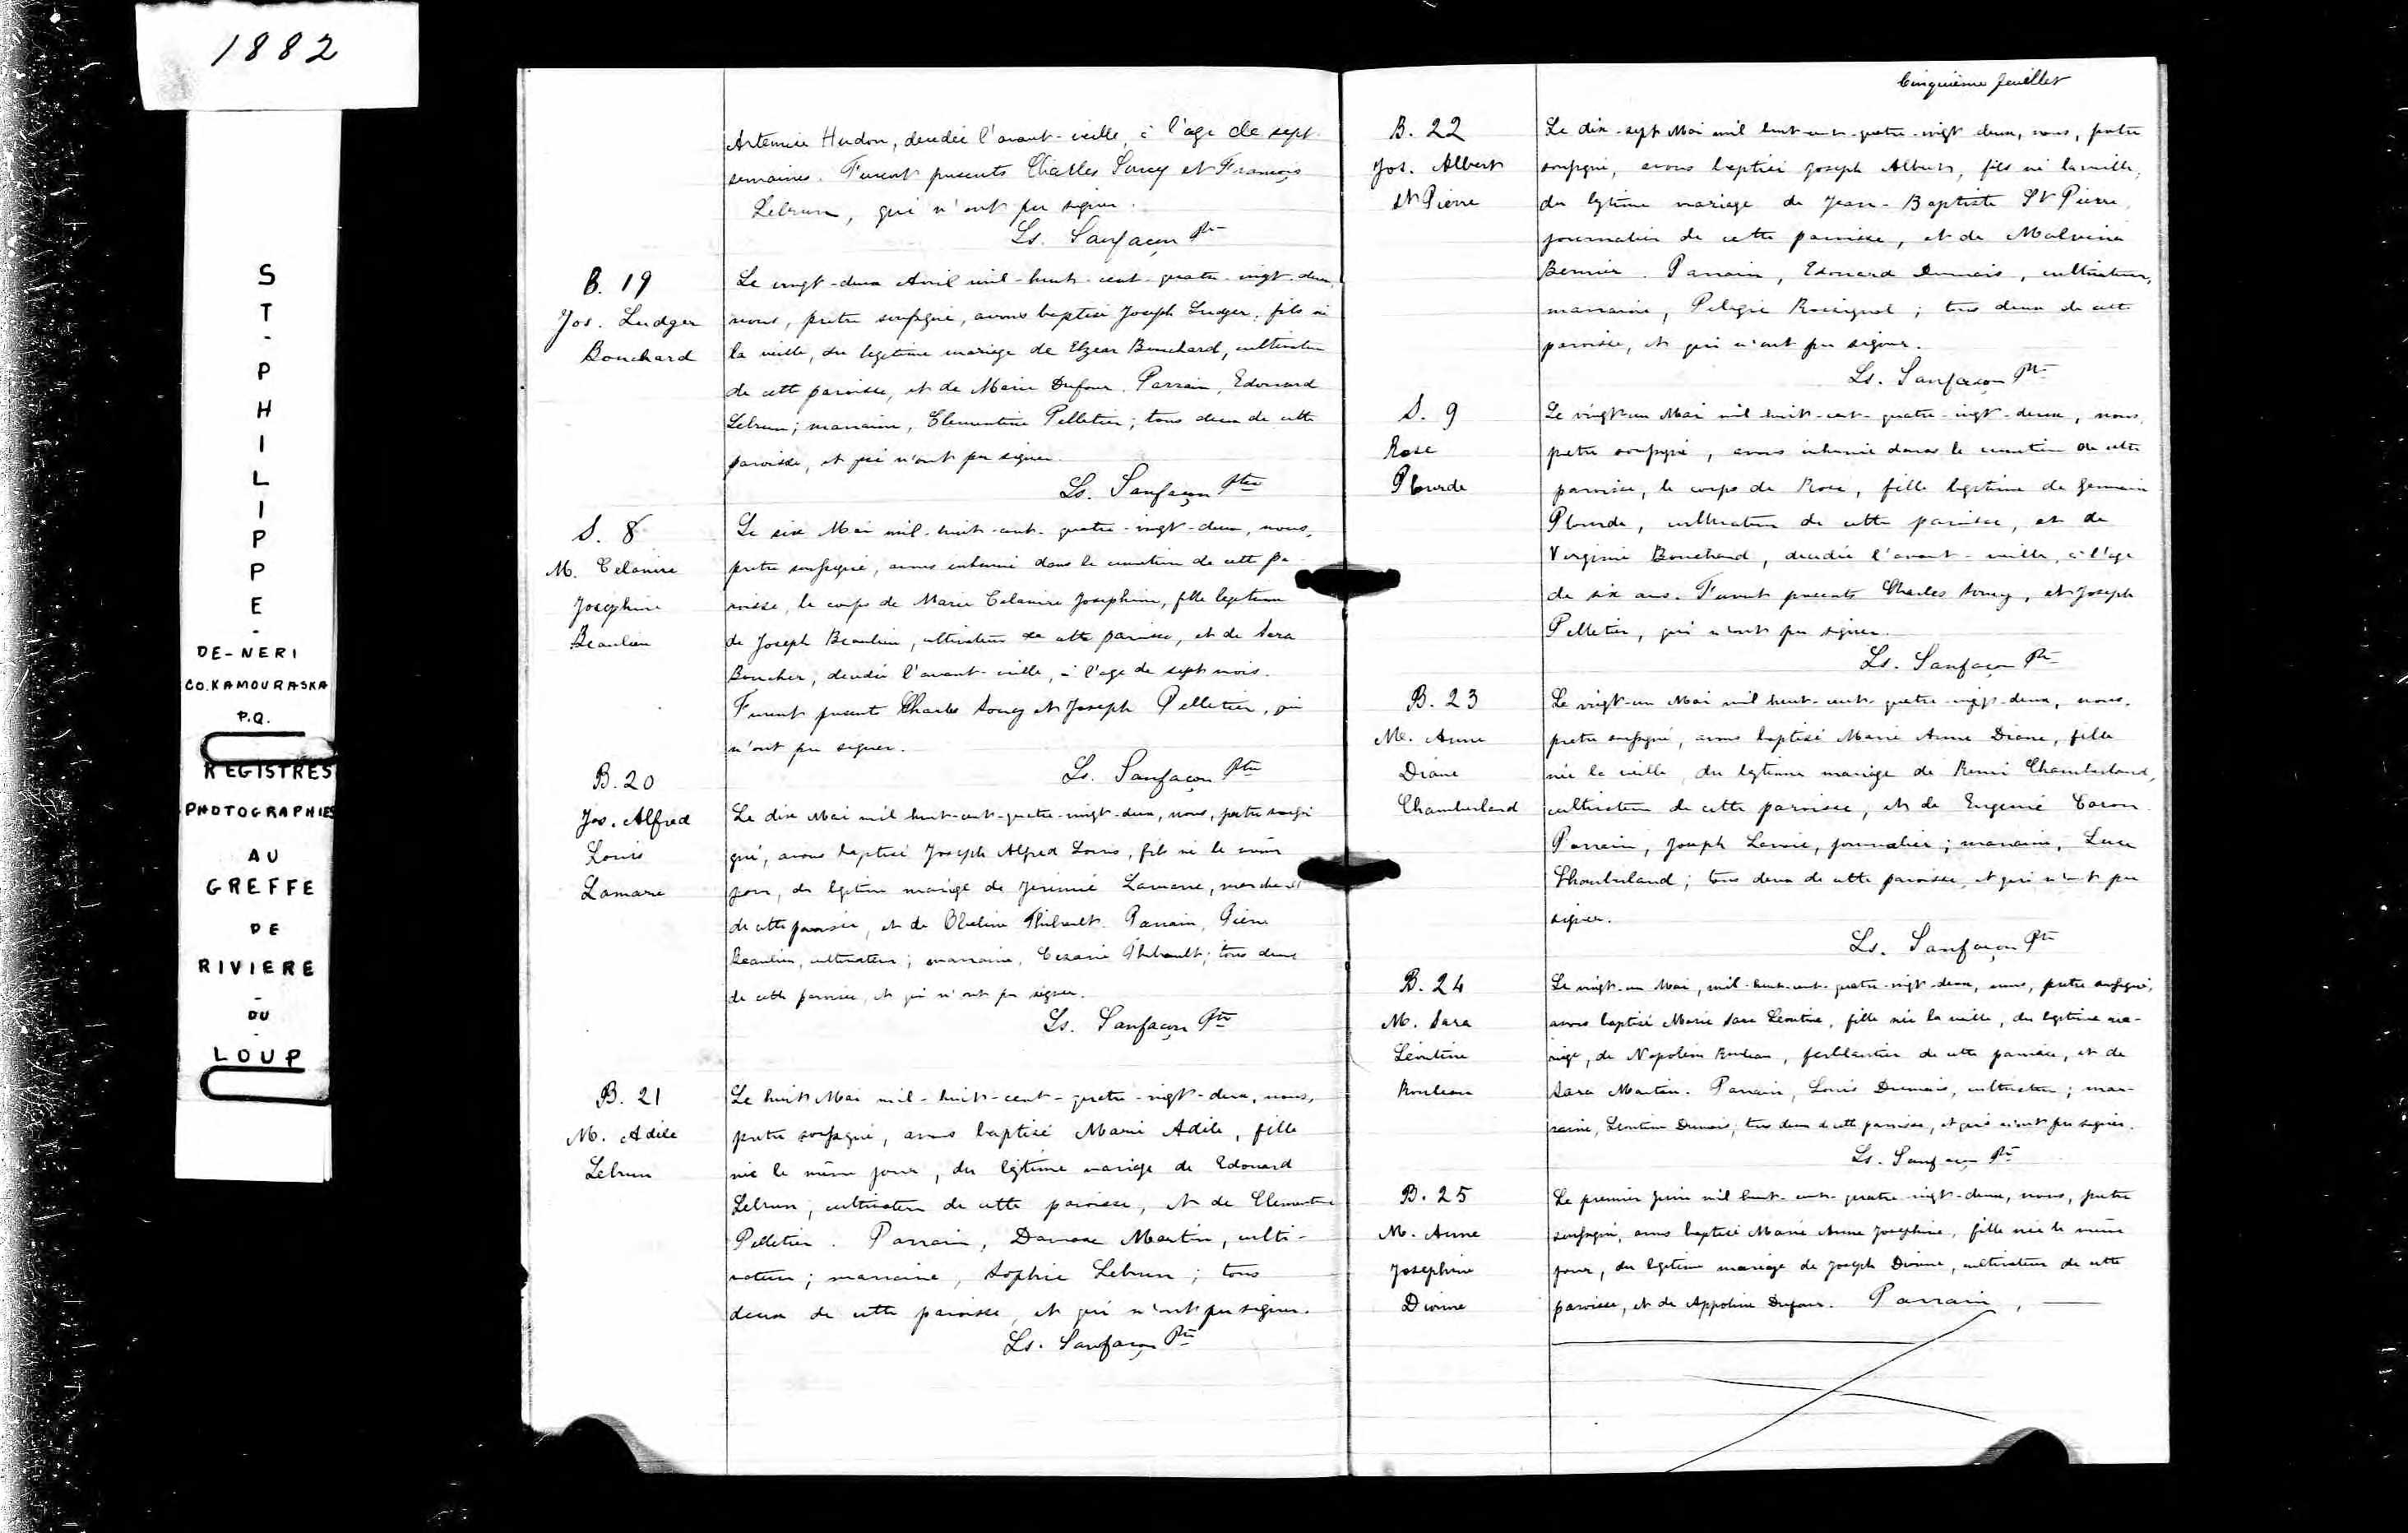 1882
S
T
-
P
H
I
L
I
P
P
E
-
DE-NERI
CO. KAMOURASKA
P.Q.
REGISTRES
PHOTOGRAPHIES
AU
GREFFE
DE
RIVIERE
-
DU
-
LOUP
Artemise Hudon, decedée l'avant-veille, à l'age de sept
semaines. Furent presents Charles Soucy et François
Lebrun, qui n'ont pu signer.
Ls. Sanfaçon Ptre
B. 19
Jos. Ludger
Bouchard
Le vingt-deux Avril mil-huit-cent-quatre-vingt-deux,
nous, prêtre soussigné, avons baptisé Joseph Ludger, fils né
la veille, du legitime mariage de Elzear Bouchard, cultivateur
de cette paroisse, et de Marie Dufour. Parrain, Edouard
Lebrun; marraine, Clementine Pelletier; tous deux de cette
paroisse, et qui n'ont pu signer.
Ls. Sanfaçon Ptre
S. 8
M. Celanire
Josephine
Beaulieu
Le six Mai mil-huit-cent-quatre-vingt-deux, nous,
pretre soussigné, avons inhumé dans le cimetiere de cette pa-
roisse, le corps de Marie Celanire Josephine, fille legitime
de Joseph Beaulieu, cultivateur de cette paroisse, et de Sara
Boucher, decedée l'avant-veille, à l'age de sept mois.
Furent presents Charles Soucy et Joseph Pelletier, qui
n'ont pu signer.
Ls. Sanfaçon Ptre
B. 20
Jos. Alfred
Louis
Lamarre
Le dix Mai mil-huit-cent-quatre-vingt-deux, nous, pretre soussi-
gné, avons baptisé Joseph Alfred Louis, fils né le même
jour, du legitime mariage de Jeremie Lamarre, marchand
de cette paroisse, et de Thibault. Parrain, Pierre
Beaulieu, cultivateur; marraine, Cezarie Thibault; tous deux
de cette paroisse, et qui n'ont pu signer.
Ls. Sanfaçon Ptre
B. 21
M. Adèle
Lebrun
Le huit Mai mil-huit-cent-quatre-vingt-deux, nous,
pretre soussigné, avons baptisé Marie Adèle, fille
née le même jour, du légitime mariage de Edouard
Lebrun, cultivateur de cette paroisse, et de Clementine
Pelletier. Parrain, Damase Martin, culti-
vateur; marraine, Sophie Lebrun; tous
deux de cette paroisse, et qui n'ont pu signer.
Ls. Sanfaçon Ptre
Cinquième feuillet
B. 22
Jos. Albert
St Pierre
Le dix-sept Mai mil huit-cent-quatre-vingt deux, nous, pretre
soussigné, avons baptisé Joseph Albert, fils né la veille,
du legitime mariage de Jean-Baptiste St Pierre,
journalier de cette paroisse, et de Malvina
Bernier. Parrain, Edouard Dumais, cultivateur,
marraine, Pelagie Rossignol; tous deux de cette
paroisse, et qui n'ont pu signer.
Ls. Sanfaçon Ptre
S. 9
Rose
Plourde
Le vingt-un Mai mil huit-cent-quatre-vingt-deux, nous,
pretre soussigné, avons inhumé dans le cimetiere de cette
paroisse, le corps de Rose, fille legitime de Germain
Plourde, cultivateur de cette paroisse, et de
Virginie Bouchard, decedée l'avant-veille, à l'age
de six ans. Furent presents Charles Soucy, et Joseph
Pelletier, qui n'ont pu signer.
Ls. Sanfaçon Ptre
B. 23
M. Anne
Diane
Chamberland
Le vingt-un Mai mil huit-cent-quatre-vingt-deux, nous,
pretre soussigné, avons baptisé Marie Anne Diane, fille
née la veille, du legitime mariage de Remi Chamberland,
cultivateur de cette paroisse, et de Eugenie Caron.
Parrain, Joseph Lavoie, journalier; marraine, Luce
Chamberland; tous deux de cette paroisse, et qui n'ont pu
signer.
Ls. Sanfaçon Ptre
B. 24
M. Sara
Léontine
Rouleau
Le vingt-un Mai, mil-huit-cent-quatre-vingt-deux, nous, pretre soussigné,
avons baptisé Marie Sara Léontine, fille née la veille, du legitime ma-
riage, de Napoléon Rouleau, ferblantier de cette paroisse, et de
Sara Martin. Parrain, Louis Dumais, cultivateur; mar-
raine, Léontine Dumais; tous deux de cette paroisse, et qui n'ont pu signer.
Ls. Sanfaçon Ptre
B. 25
M. Anne
Josephine
Dionne
Le premier Juin mil huit-cent-quatre-vingt-deux, nous, pretre
soussigné, avons baptisé Marie Anne Josephine, fille née le même
jour, du legitime mariage de Joseph Dionne, cultivateur de cette
paroisse, et de Appoline Dufour. Parrain,